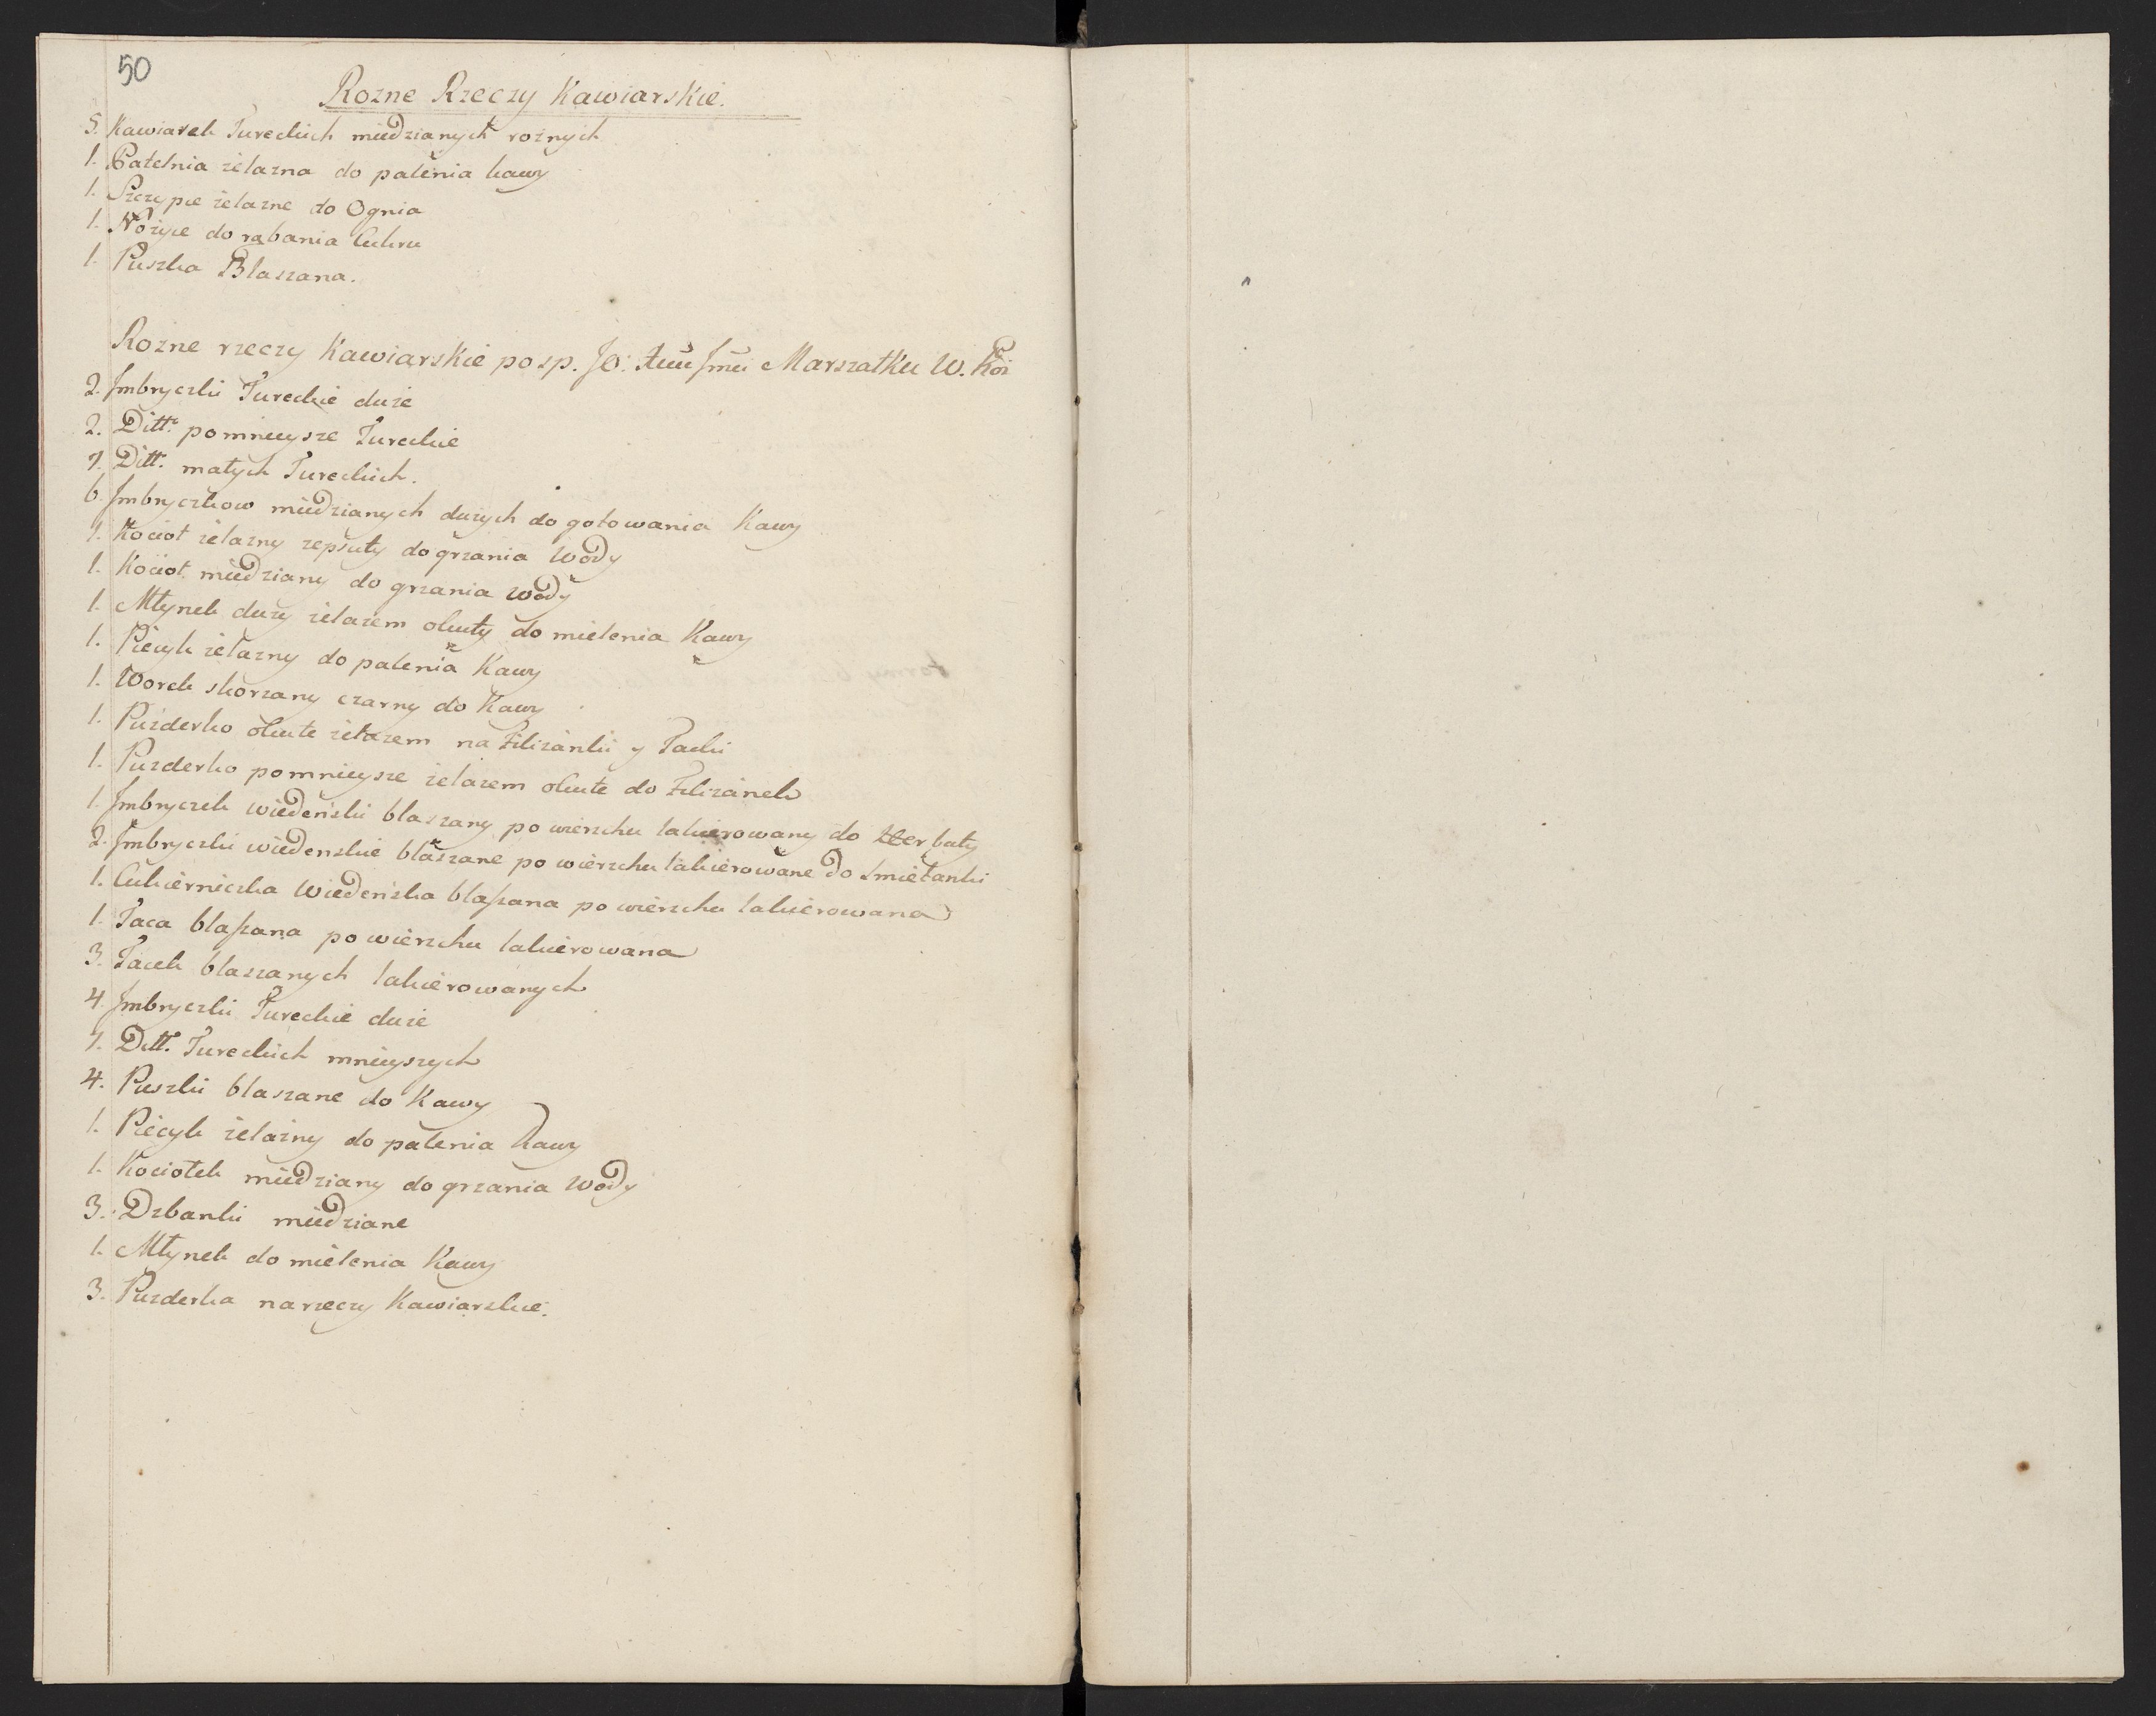 50
Rozne Rzeczy Kawiarskie.
5. Kawiarek Tureckich miedzianych roznych
1. Patelnia żelazna do palenia kawy
1. Szczypce żelazne do Ognia
1. Nożyce do rąbania Cukru
1. Puszka Blaszana.
Rozne rzeczy Kawiarskie po sp. JO: Marszałku W. Kor
2. Jmbryczki Tureckie duże
2. Ditt. pomnieysze Tureckie
7. Ditt. małych Tureckich.
6. Jmbryczkow miedzianych dużych do gotowania Kawy
1. Kocioł żelazny zepsuty do grzania Wody
1. Kocioł miedziany do grzania wody
1. Młynek duży żelazem okuty do mielenia Kawy
1. Piecyk żelazny do palenia Kawy
1. Worek skorzany czarny do Kawy
1. Puzderko okute żelazem na Filiżanki y Tacki
1. Puzderko pomnieysze żelazem okute do Filiżanek
1. Jmbryczek wiedeński blaszany po wierzchu lakierowany do Herbaty
2. Jmbryczki wiedenskie blaszane po wierzchu lakierowane do Smietanki
1. Cukierniczka Wiedeńska blaszana po wierzchu lakierowana
1. Taca blaszana po wierzchu lakierowana
3. Tacek blaszanych lakierowanych
4. Jmbryczki Tureckie duże
7. Ditt. Tureckich mnieyszych
4. Puszki blaszane do Kawy
1. Piecyk żelazny do palenia Kawy
1. Kociołek miedziany do grzania Wody
3. Dzbanki miedziane
1. Młynek do mielenia Kawy
3. Puzderka na rzeczy Kawiarskie.